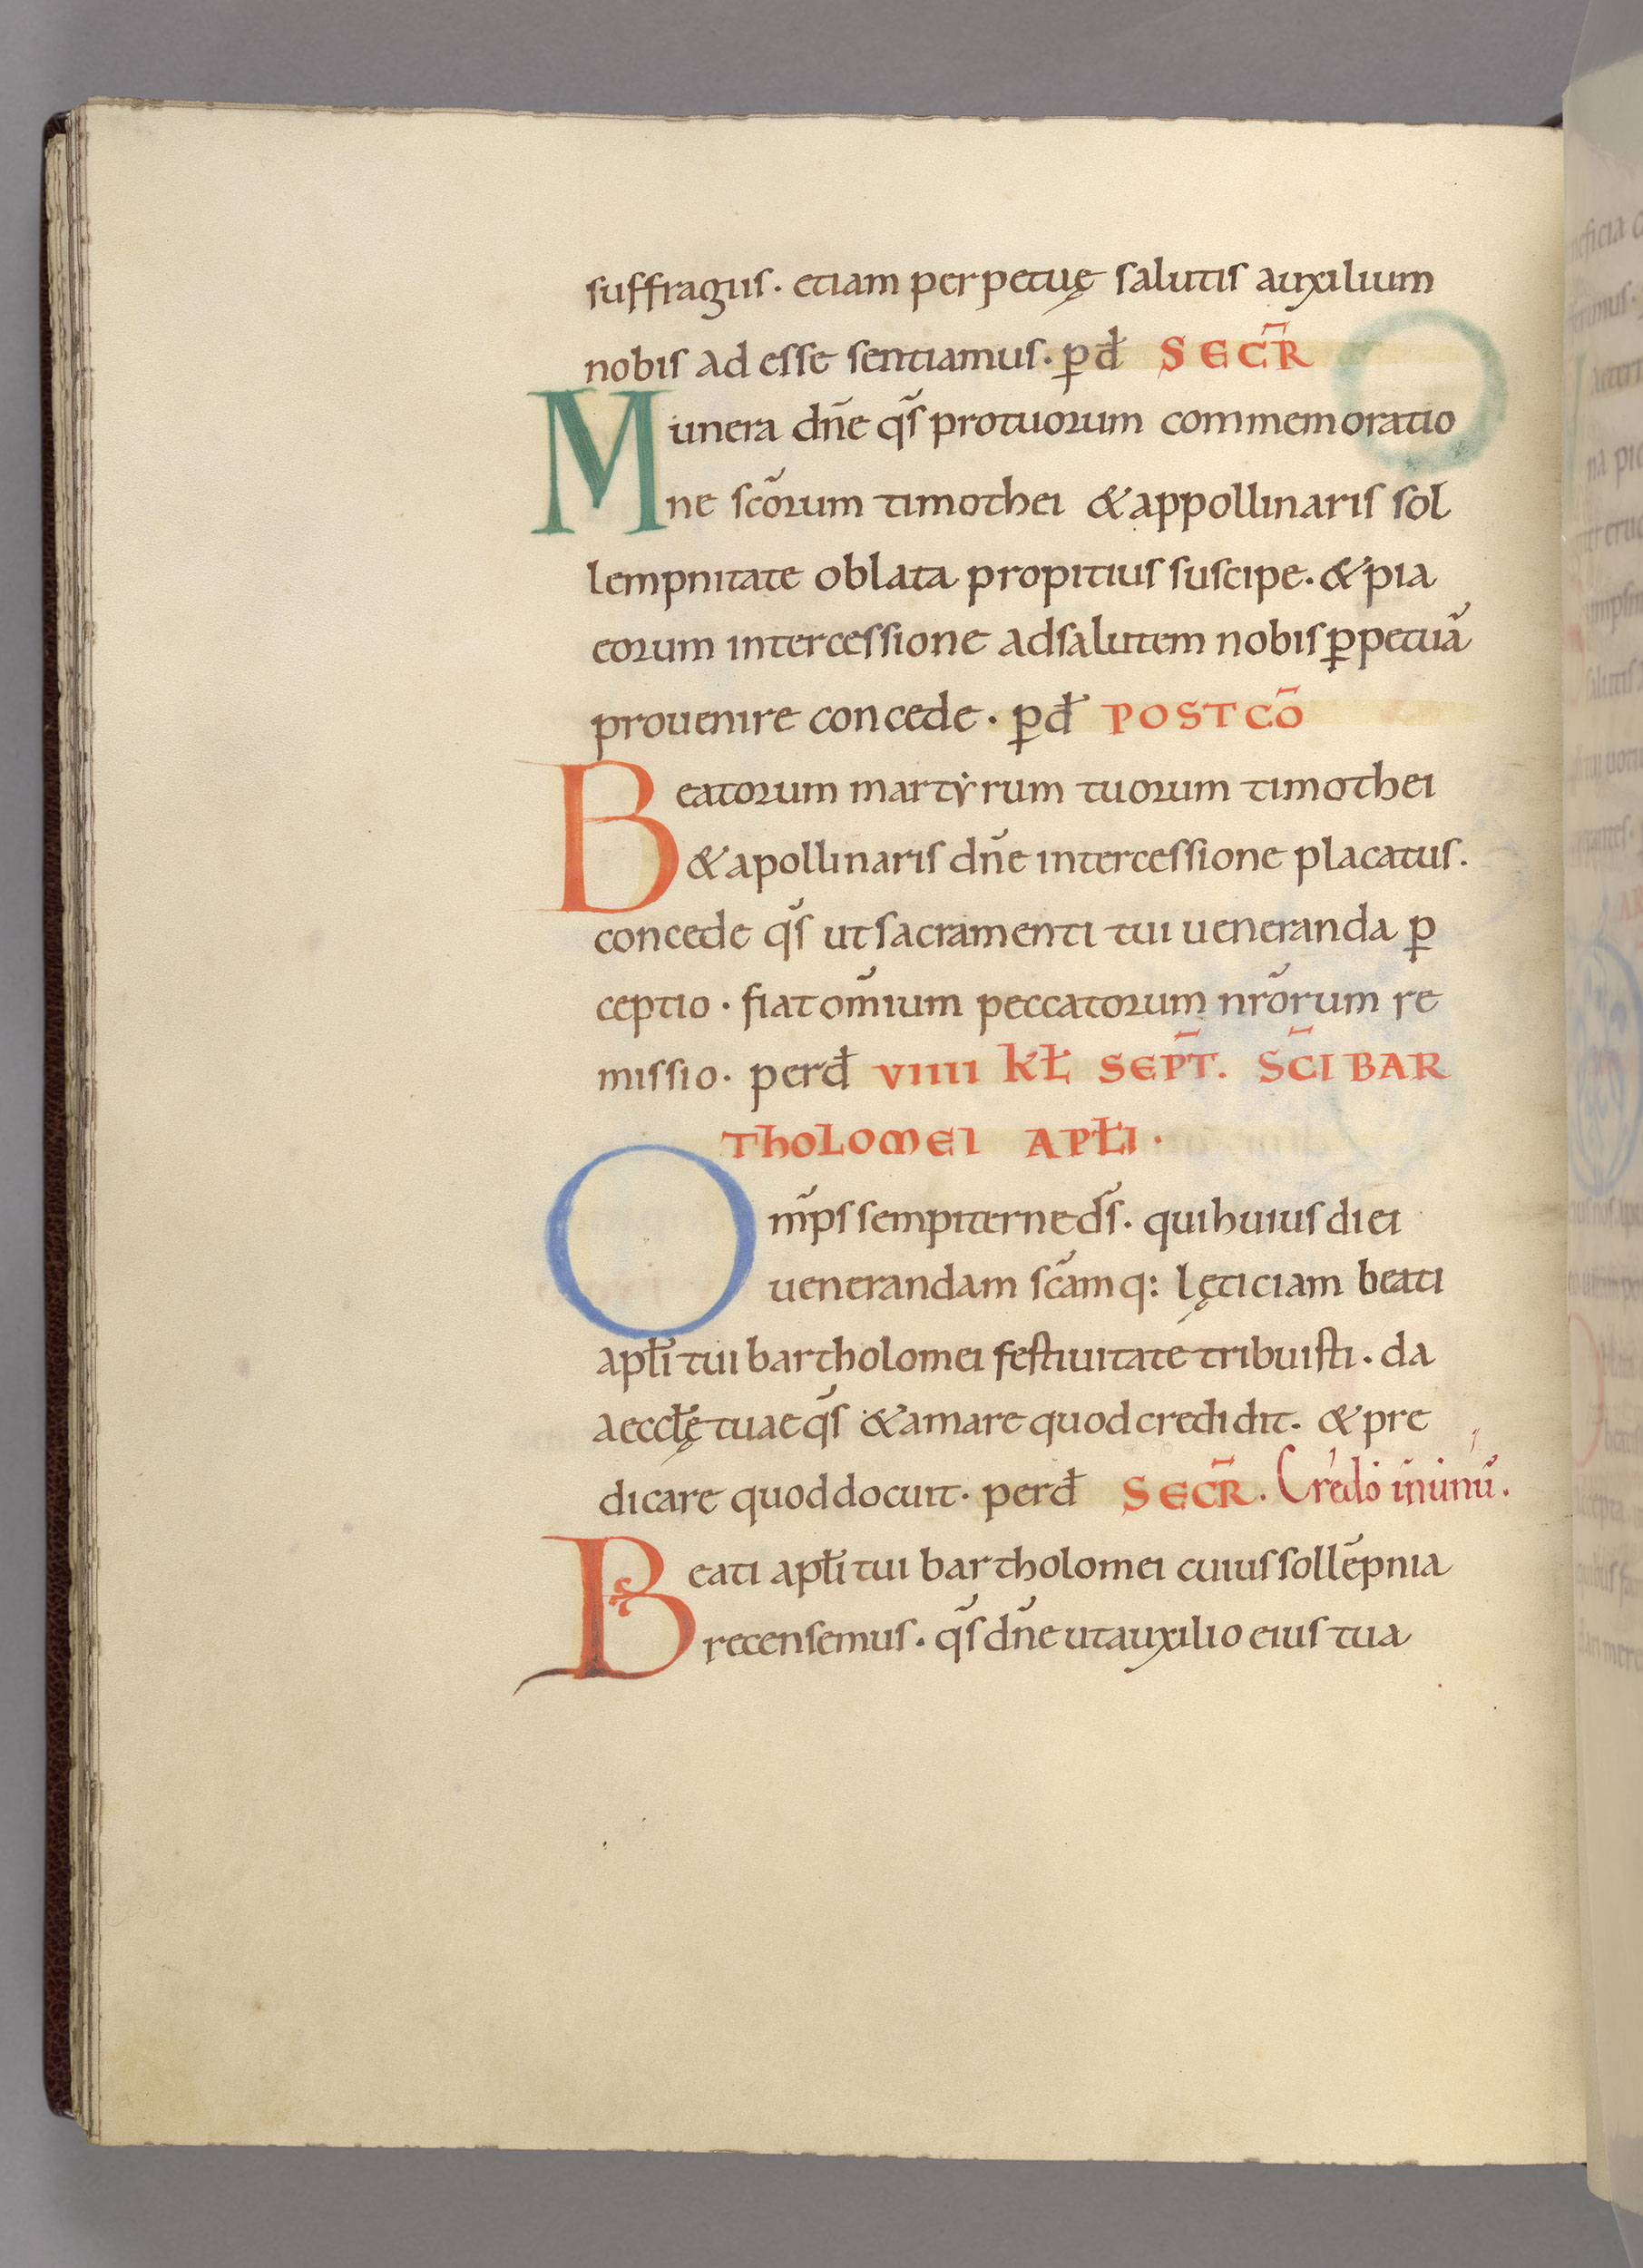 suffragiis. etiam perpetuę salutis auxilium
nobis ad esse sentiamus. p̲d̄ SECR̄
Munera dn̄e qs̄ protuorum commemoratio
ne scōrum timothei & appollinaris sol
lempnitate oblata propitius suscipe. & pia
eorum intercessione adsalutem nobis ꝑpetuā
prouenire concede. ꝑd̄ POSTCŌ
Beatorum martẏrum tuorum timothei
& apollinaris dn̄e intercessione placatus.
concede qs̄ ut sacramenti tui ueneranda ꝑ
ceptio. fiat om̄ium peccatorum nrōrum re
missio. perd̄ VIIII KƚSEPT̄. SC̄I BAR
THOLOMEI APƚI.
Om̄ps sempiterne ds̄. qui huius diei
uenerandam scāmq: lęticiam beati
apƚi tui bartholomei festiuitate tribuisti. da
aeccƚę tuae qs̄ & amare quod credidit. & pre
dicare quod docuit. perd̄ SECR̄. Credo in unū.
Beati apƚi tui bartholomei cuius sollēpnia
recensemus. qs̄ dn̄e ut auxilio eius tua